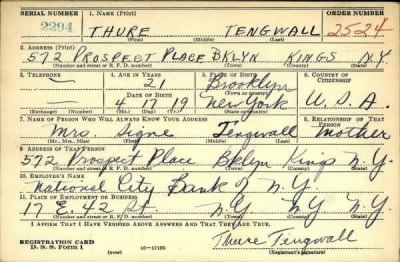 SERIAL NUMBER 1. Name (Print) ORDER NUMBER
2294 THURE TENGWALL 2524
(First) (Middle) (Last)
2. Address (Print)
572 PROSPECT PLACE BKLYN KINGS N.Y.
(Number and street or R. F. D. number) (Town) (County) (State)
3. Telephone 4. Age in Years 5. Place of Birth 6. Country of Citizenship
— 21 Brooklyn
Date of Birth (Town or county)
4 17 19 New York U.S.A.
(Exchange) (Number) (Mo.) (Day) (Yr.) (State or country)
7. Name of Person Who Will Always Know Your Address 8. Relationship of That Person
Mrs. Signe Tengwall Mother
(Mr., Mrs., Miss) (First) (Middle) (Last)
9. Address of That Person
572 Prospect Place Bklyn Kings N.Y.
(Number and street or R. F. D. number) (Town) (County) (State)
10. Employer's Name
National City Bank of N.Y.
11. Place of Employment or Business
17 E. 42 St. NY NY NY
(Number and street or R. F. D. number) (Town) (County) (State)
I Affirm That I Have Verified Above Answers and That They Are True.
REGISTRATION CARD
D. S. S. Form 1 16—17105 Thure Tengwall
(Registrant's signature)